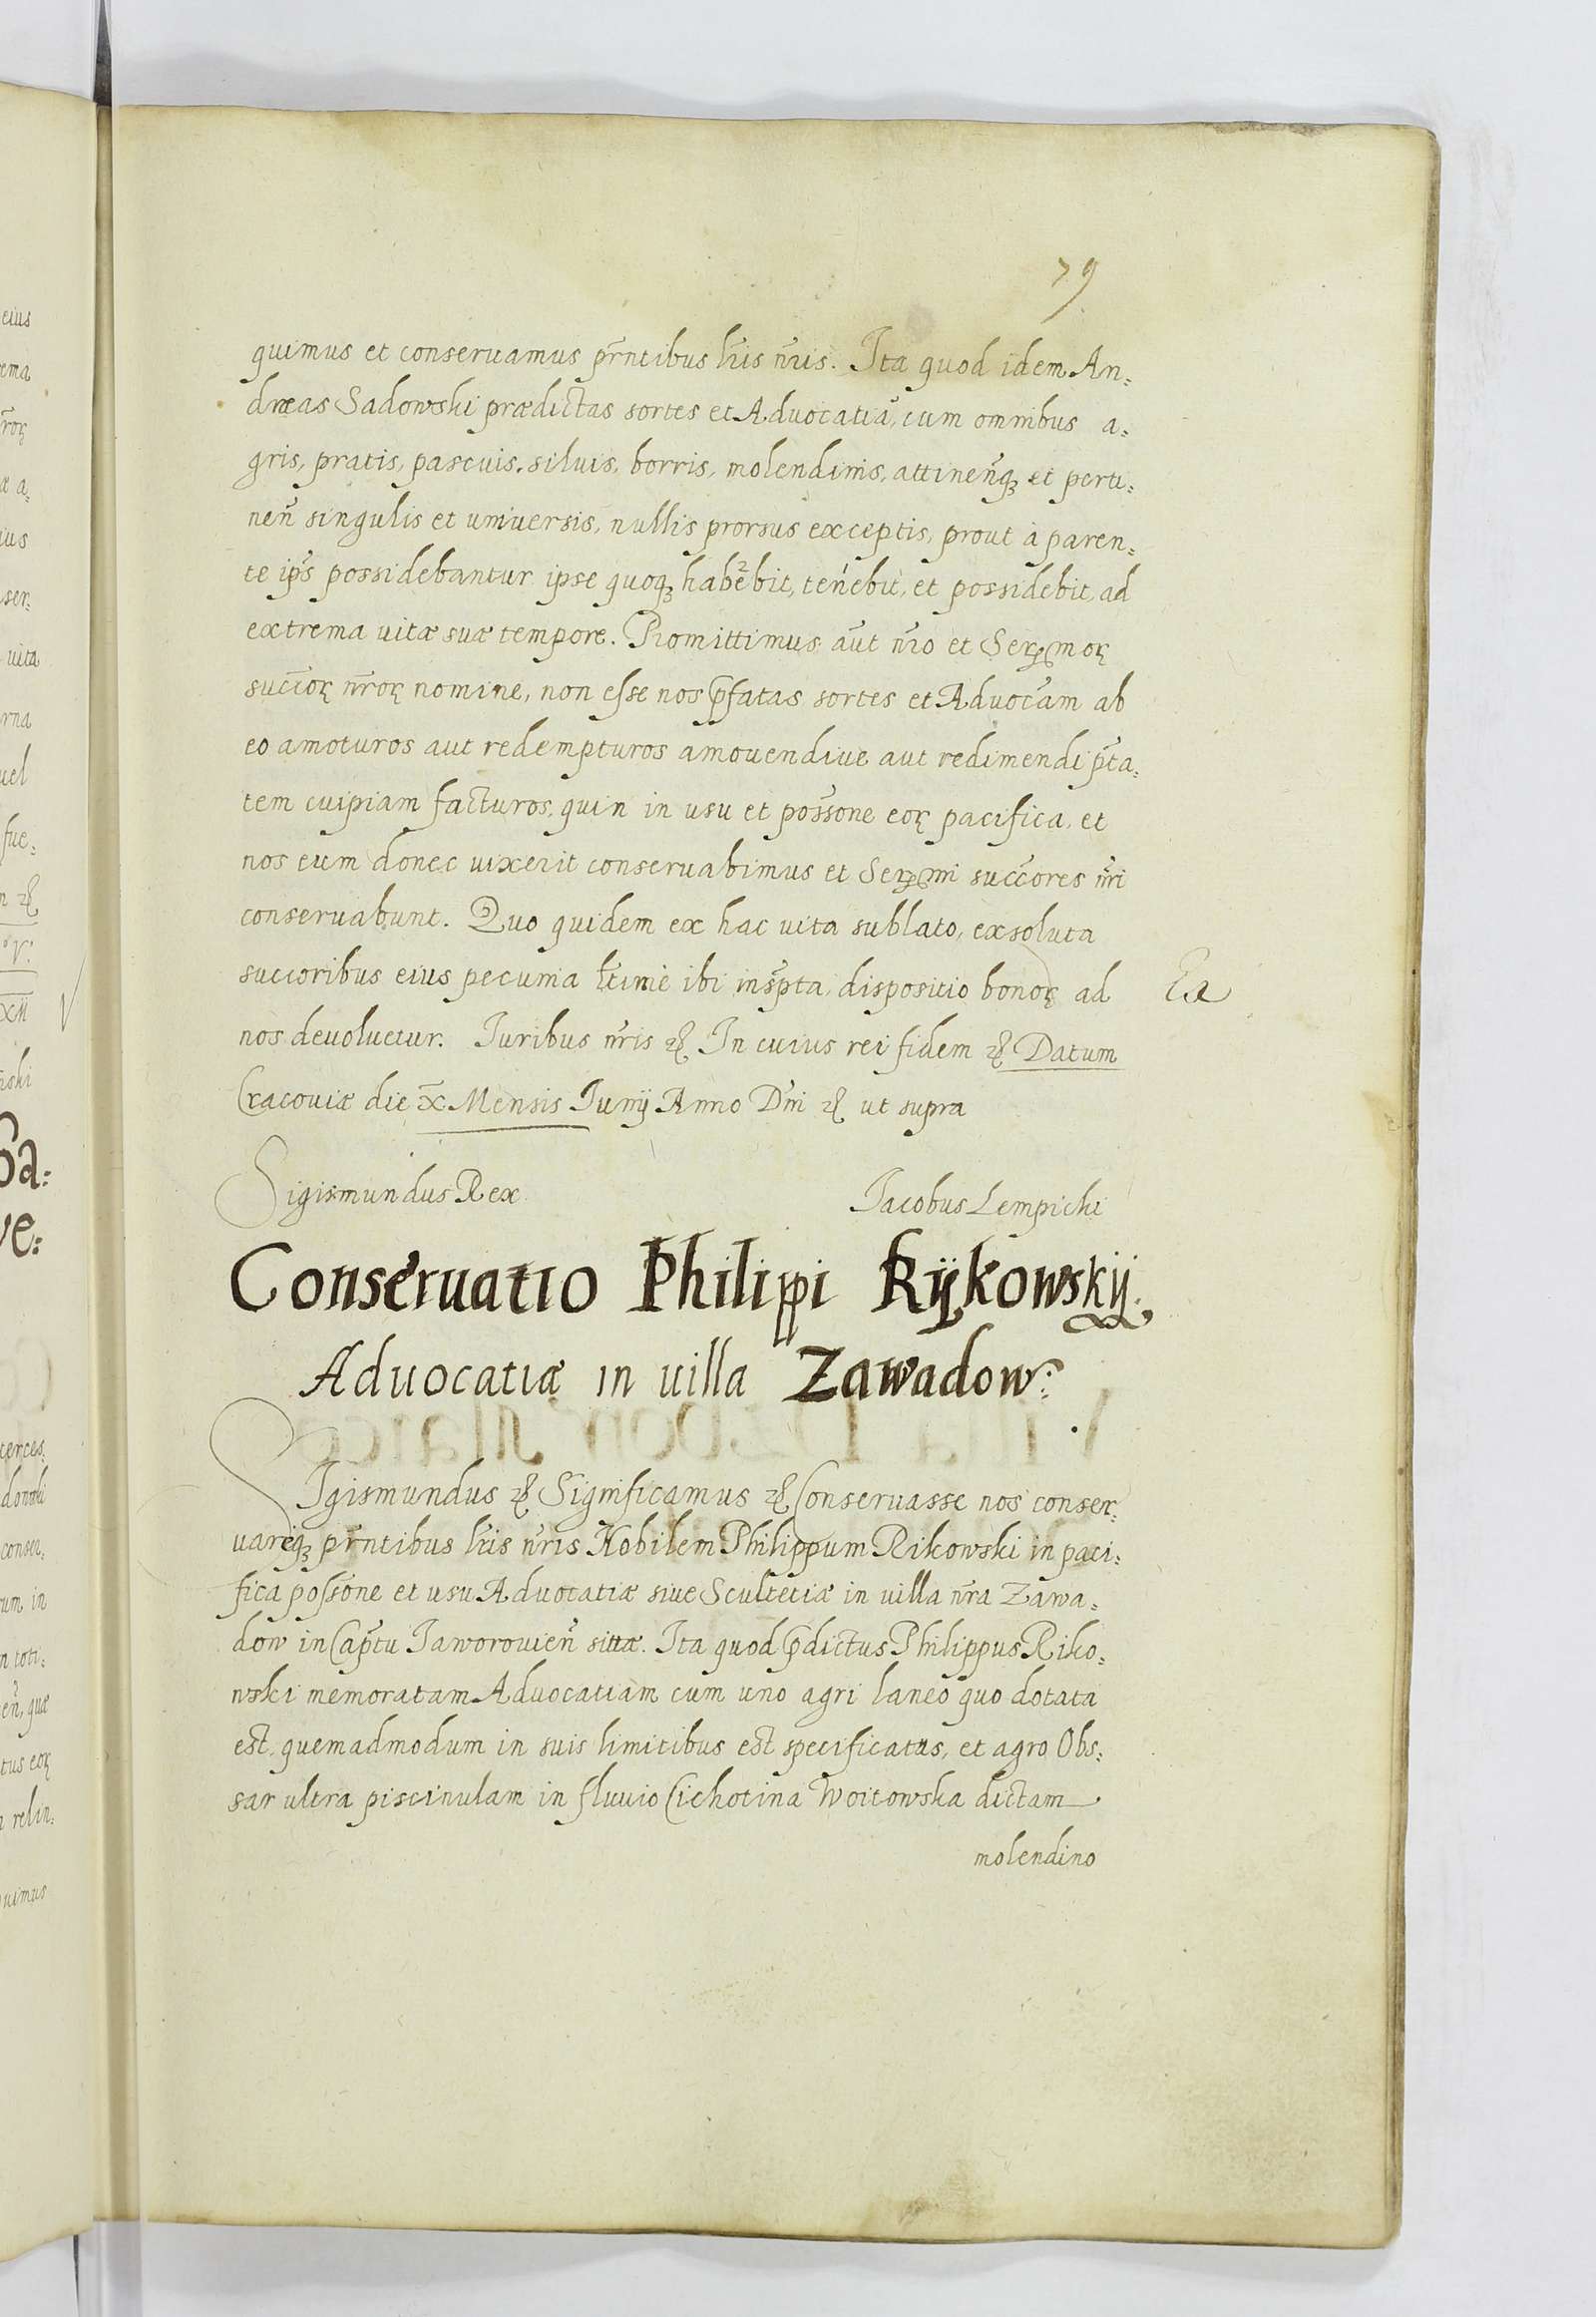 79
quimus et conseruamus pr̄ntibus lr̄is nr̄is. Ita quod idem An=
dreas Sadowski prædictas sortes et Aduocatiā, cum omnibus a=
gris, pratis, pascuis, siluis, borris, molendinis, attineñqꝫ et perti=
neñ singulis et uniuersis, nullis prorsus exceptis, prout à paren=
te ip̄s possidebantur ipse quoqꝫ habebit, tenebit, et possidebit, ad
extrema uitæ suæ tempore. Promittimus aūt nr̄o et Serᵐoꝝ
succ̄oꝝ nr̄oꝝ nomine, non esse nos p̄fatas sortes et Aduoc̄am ab
eo amoturos aut redempturos amouendiue aut redimendi p̄ta=
tem cuipiam facturos, quin in usu et poss̄one eoꝝ pacifica, et
nos eum donec uixerit conseruabimus et Serᵐi succ̄ores nr̄i
conseruabunt. Quo quidem ex hac uita sublato, exsoluta
succoribus eius pecunia lt̄ime ibi inscp̄ta, dispositio bonoꝝ ad
Ex
nos deuoluetur. Iuribus nr̄is ꝛc̄ In cuius rei fidem ꝛc̄ Datum
Cracouiæ die x̄ Mensis Iunij Anno Dn̄i ꝛc̄ ut supra
Sigismundus Rex
Iacobus Lempichi
Conseruatio Philippi Rÿkowskij.
Aduocatiæ in uilla Zawadow:
SIgismundus ꝛc̄ Significamus ꝛc̄ Conseruasse nos conser=
uareqꝫ pr̄ntibus lr̄is nr̄is Nobilem Philippum Rikowski in paci=
fica poss̄one et usu Aduocatiæ siue Scultetiæ in uilla nr̄a Zawa=
dow in Cap̄tu Iaworouieñ sittæ. Ita quod p̄dictus Philippus Riko=
wski memoratam Aduocatiam cum uno agri laneo quo dotata
est, quemadmodum in suis limitibus est specificatus, et agro Obs=
sar ultra piscinulam in fluuio Cichotina Woitowska dictam
molendino